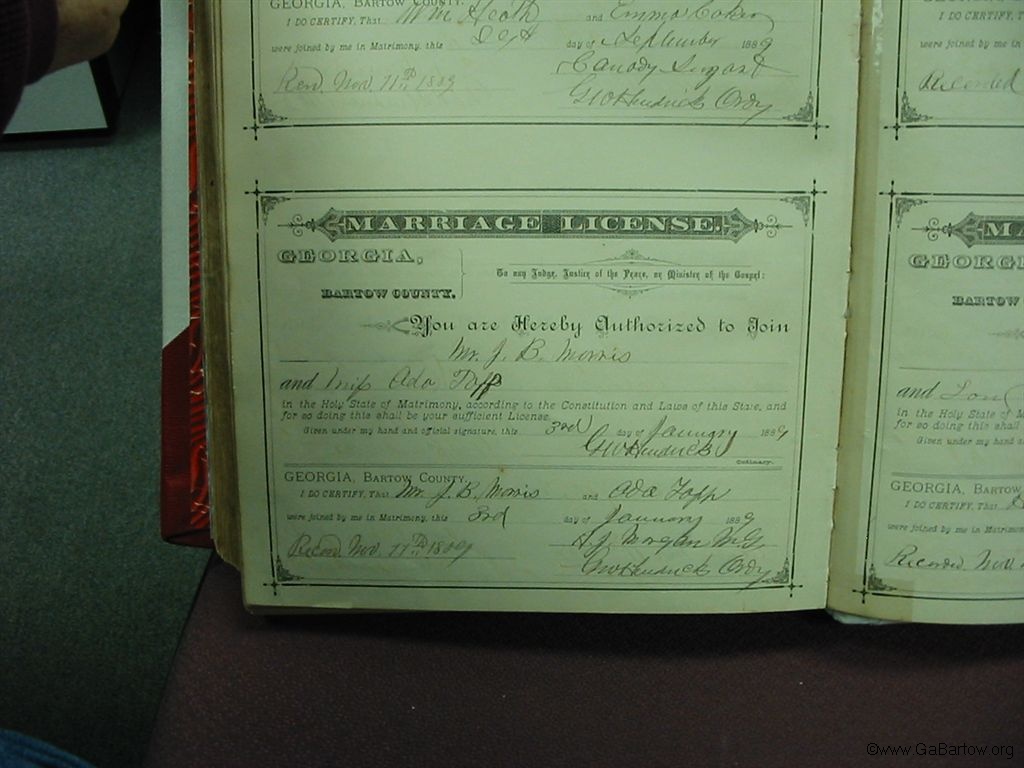 GEORGIA, BARTOW COUNTY.
I DO CERTIFY, That Wm Heath and Emma
were joined by me in Matrimony, this day of September 1889
Recd. Nov. 11th 1889
GW Hendricks Ordy
MARRIAGE LICENSE.
GEORGIA,
BARTOW COUNTY.
To any Judge, Justice of the Peace, or Minister of the Gospel:
You are Hereby Authorized to Join
Mr. J. B. Morris
and Miss Ada Topp
in the Holy State of Matrimony, according to the Constitution and Laws of this State, and
for so doing this shall be your sufficient License.
Given under my hand and official signature, this 3rd day of January 1889
GW Hendricks
Ordinary.
GEORGIA, BARTOW COUNTY.
I DO CERTIFY, That Mr. J. B. Morris and Ada Topp
were joined by me in Matrimony, this 3rd day of January 1889
Record Nov. 11th 1889
H J Morgan M.G.
GW Hendricks Ordy
I DO CERTIFY, T
were joined by me in
Recorded
MA
GEORGI
BARTOW
and
in the Holy State of M
for so doing this shall
Given under my hand a
GEORGIA, BARTOW
I DO CERTIFY, That
were joined by me in Matrimon
Recorded Nov
©www.GaBartow.org